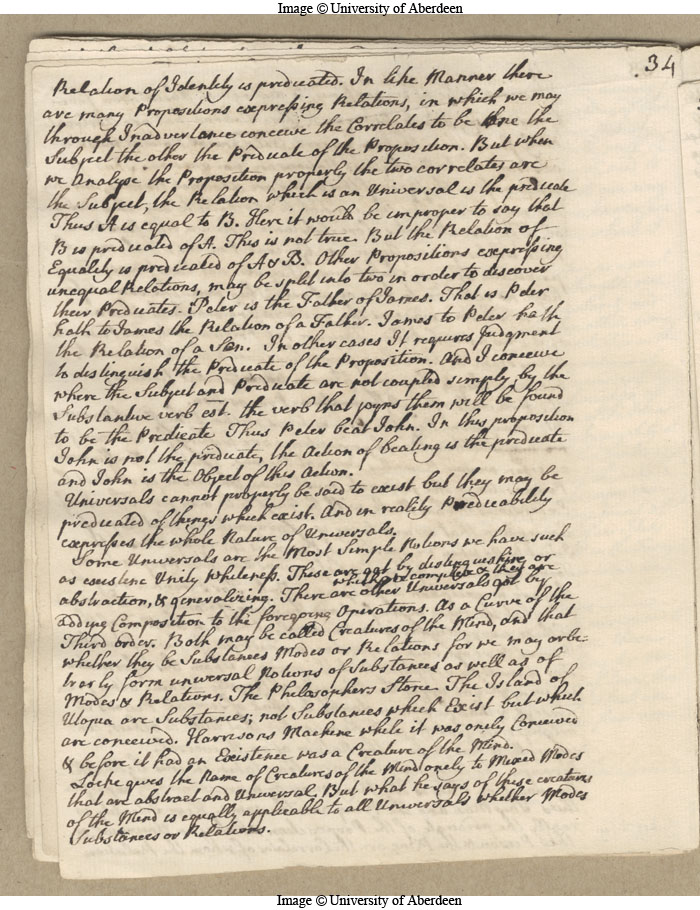 Image © University of Aberdeen
34
Relation of Identity is predicated. In like Manner there
are many Propositions expressing Relations, in which we may
through Inadvertance conceive the Correlates to be one the
Subject the other the Predicate of the Proposition. But when
we Analyse the Proposition properly the two correlates are
the Subject, the Relation which is an Universal is the predicate
Thus A is equal to B. Here it would be improper to say that
B is predicated of A. This is not true. But the Relation of
Equality is predicated of A & B. Other Propositions expressing
unequal Relations, may be split into two in order to discover
their Predicates. Peter is the Father of James. That is Peter
hath to James the Relation of a Father. James to Peter hath
the Relation of a Son. In other cases It requires Judgment
to distinguish the Predicate of the Proposition. And I conceive
where the Subject and Predicate are not coupled simply by the
Substantive verb est. the verb that joyns them will be found
to be the Predicate Thus Peter beat John. In this proposition
John is not the predicate, the action of beating is the predicate
and John is the Object of this Action.
Universals cannot properly be said to exist but they may be
predicated of things which exist. And in reality Predicability
expresses the whole Nature of Universals.
Some Universals are the Most Simple Notions we have such
as existence Unity Whiteness. These are got by distinguishing or
abstraction, & generalizing. There are other Universals got by
which are complex & they are
adding Composition to the foregoing Operations. As a Curve of the
Third order. Both may be called Creatures of the Mind, and that
whether they be Substances Modes or Relations for we may arbi-
trarly form universal Notions of Substances as well as of
Modes & Relations. The Philosophers Stone. The Island of
Utopia are Substances; not Substances which Exist but which
are conceived. Harrisons Machine while it was onely Conceived
& before it had an Existence was a Creature of the Mind.
Locke gives the Name of Creatures of the Mind onely to Mixed Modes
that are abstract and Universal. But what he says of these creatures
of the Mind is equally applicable to all Universals whether Modes
Substances or Relations.
Image © University of Aberdeen